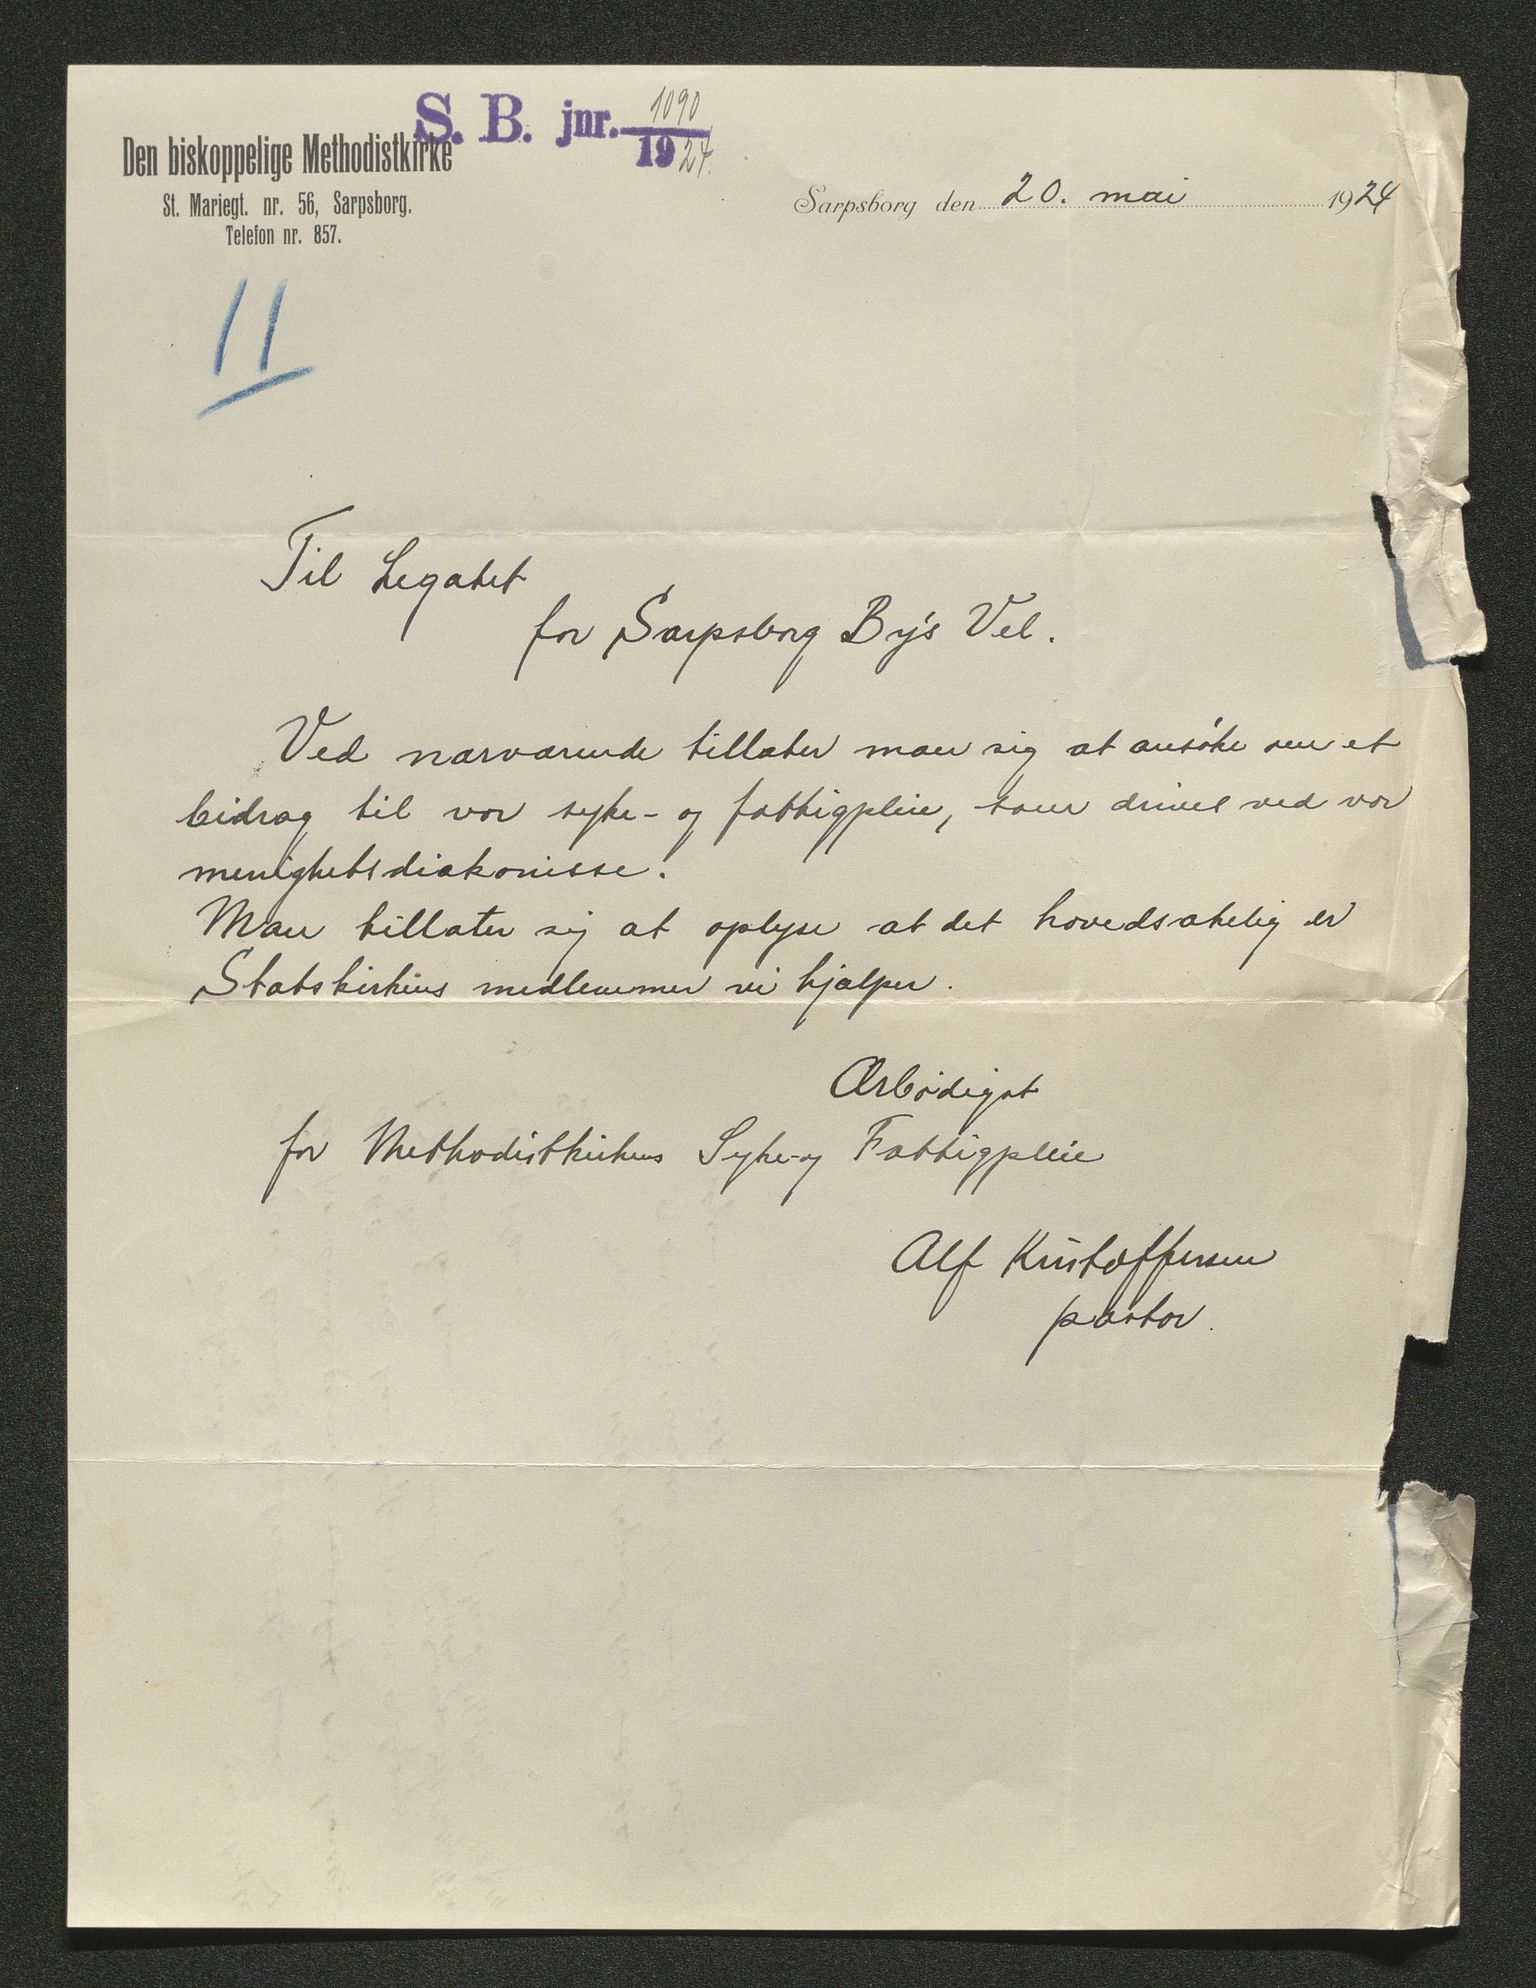 S. B. jnr. 1090
1924.
Den biskoppelige Methodistkirke
St. Mariegt. nr. 56, Sarpsborg.
Telefon nr. 857.
Sarpsborg den 20. mai 1924
11
Til Legatet
for Sarpsborg By's Vel.
Ved nærværende tillater man sig at ansöke om et
bidrag til vor syke- og fattigpleie, som drives ved vor
menighetsdiakonisse.
Man tillater sig at oplyse at det hovedsakelig er
Statskirkens medlemmer vi hjælper.
Ærbödigst
for Methodistkirkens Syke- og Fattigpleie
Alf Kristoffersen
pastor.